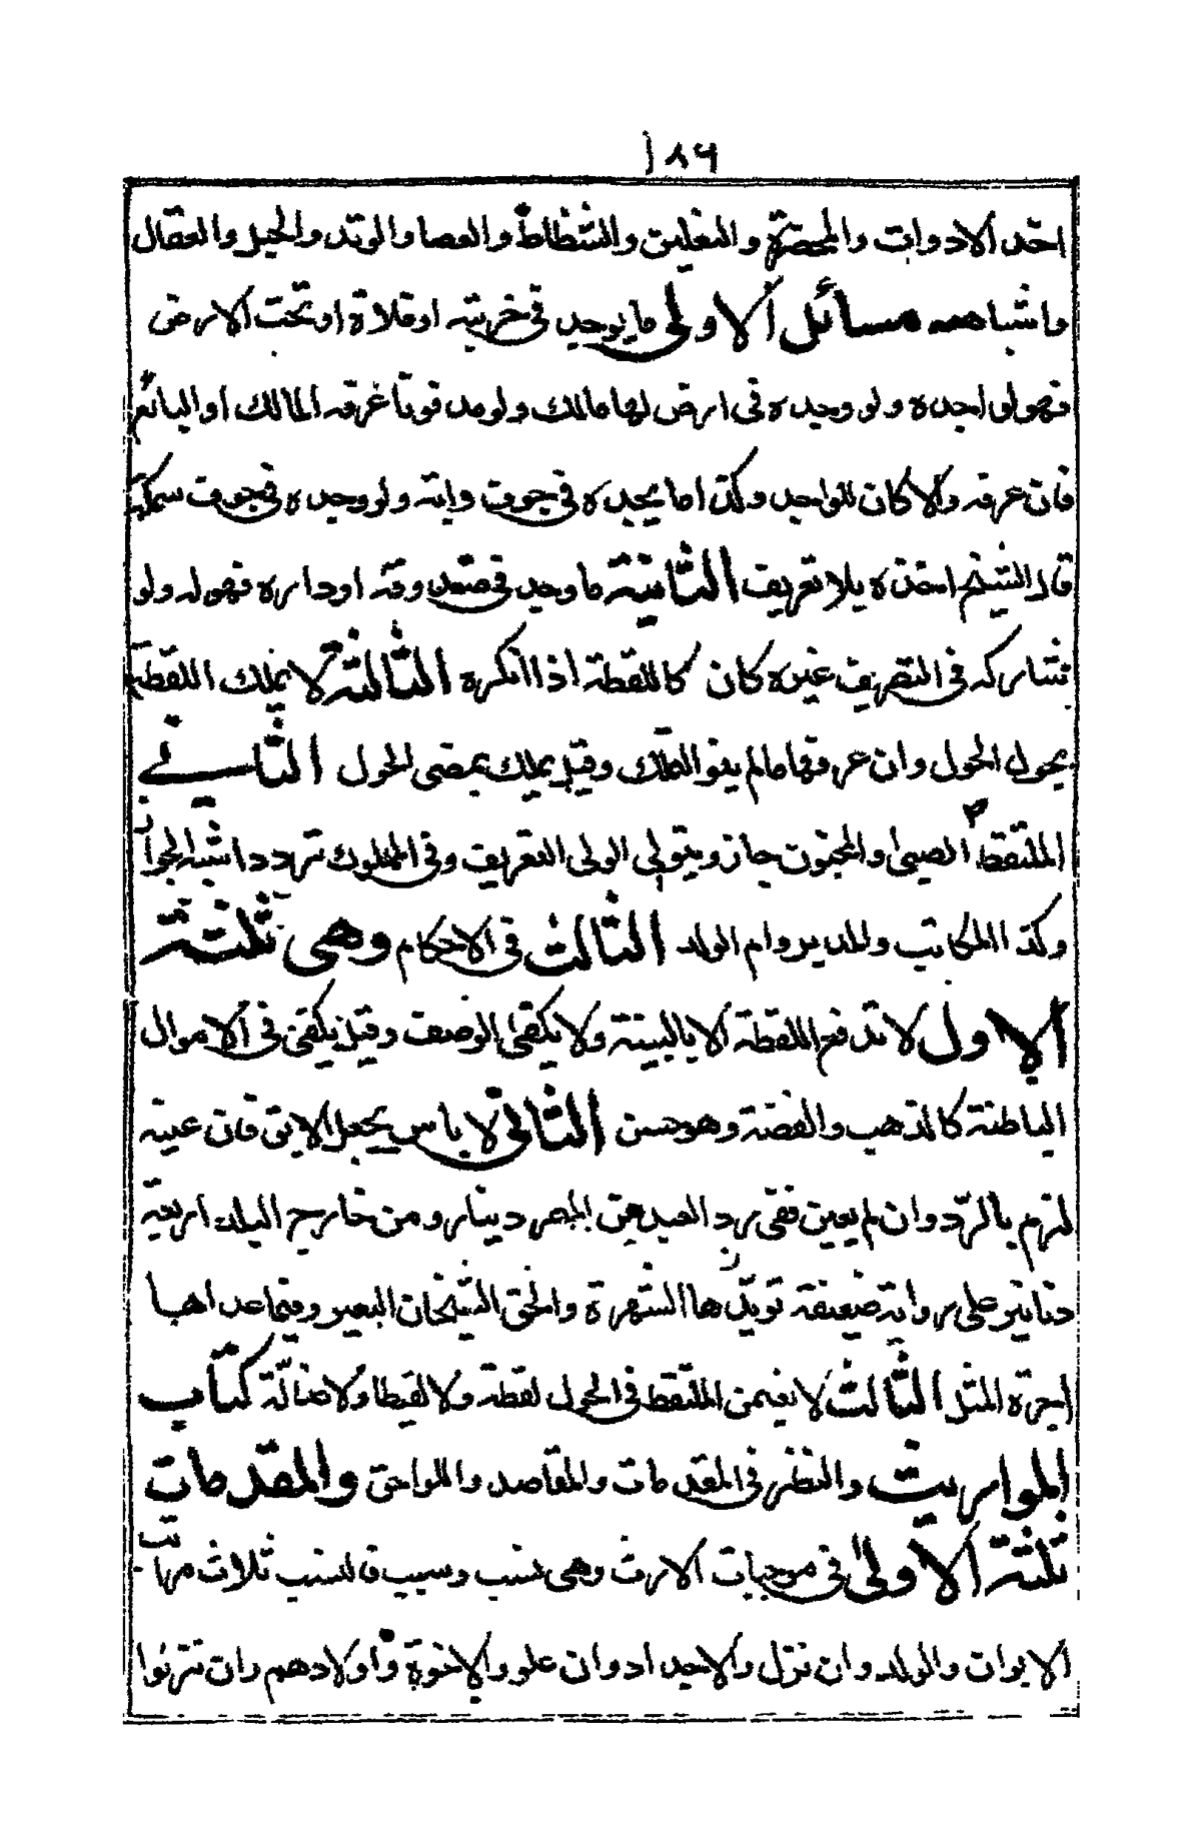 ١٨٦
اخذ الادوات والمحضرة والنعلين والشظاظ والعصا والوتد والحبل والعقال
ما شباهه مسائل الاولى ما يوجد فى خربته او فلاة او تحت الارض
فهو لواجده ولو وجده فى ارض لها مالك ولو مدفونا عرفه المالك او البائع
فان عرفه والا كان للواجد وكذا ما يجده فى جوف دابته ولو وجده فى جوف سمكة
قال الشيخ اخذه بلا تعريف الثانية ما وجد فى صندوقه او داره فهو له ولو
شاركه فى التصريف غيره كان كاللقطة اذا انكره الثالثة لا يملك اللقطة
بحول الحول وان عرفها مالم ينو التملك وقيل يملك بمضى الحول الثانى
الملتقط الصبى والمجنون جاز ويتولى الولى التعريف وفى المملوك تردد اشبه الجواز
وكذا المكاتب والمدبر وام الولد الثالث فى الاحكام وهى ثلثة
الاول لا تدفع اللقطة الا بالبينة ولا يكفى الوصف وقيل يكفى فى الاموال
الباطنة كالذهب والفضة وهو حسن الثانى لا باس بجعل الابق فان عينه
لزم بالرد وان لم يعين ففى رد العبد من المصر دينار ومن خارج البلد اربعة
دنانير على رواية ضعيفة تويدها الشهرة والحق الشيخان البعير وفيما عداهما
اجرة المثل الثالث لا يضمن الملتقط فى الحول لقطة ولا لقيطا ولا ضالة كتاب
المواريث والنظر فى المقدمات والمقاصد واللواحق والمقدمات
ثلثة الاولى فى موجبات الارث وهى نسب وسبب فالنسب ثلاث مراتب
الابوان والولد وان نزل والاجداد وان علو والاخوة واولادهم وان نزلوا